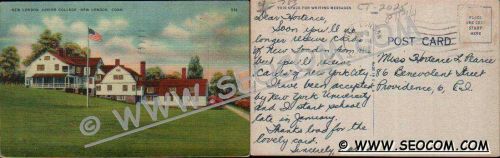 NEW LONDON JUNIOR COLLEGE, NEW LONDON, CONN.
© www.seocom.com
THIS SPACE FOR WRITING MESSAGES
CT-2025
POST CARD
PLACE
STAMP
HERE
Dear Hortence,
Soon you'll no
longer receive cards
of New London from
but you'll receive
cards of New York City
I have been accepted
by New York University
and I start school
late in January.
Thanks loads for the
lovely card.
Sincerely
Miss Hortence L. Pearce
86 Benevolent Street
Providence, 6, R.I.
© WWW.SEOCOM.COM